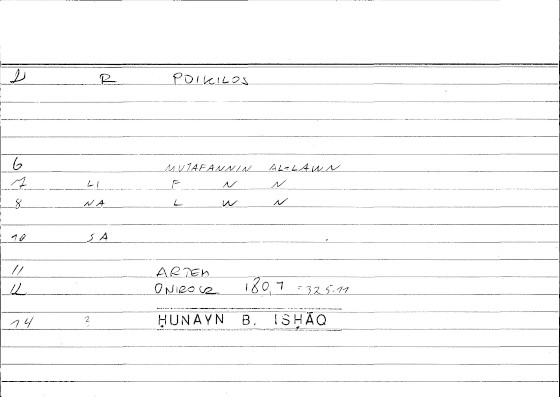 D R POIKILOS
6 MUTAFANNIN AL-LAWN
7 LI F N N
8 NA L W N
10 SA
11 ARTEM
12 ONIROCR 180,7 =325.11
14 ? ḤUNAYN B. ISḤĀQ